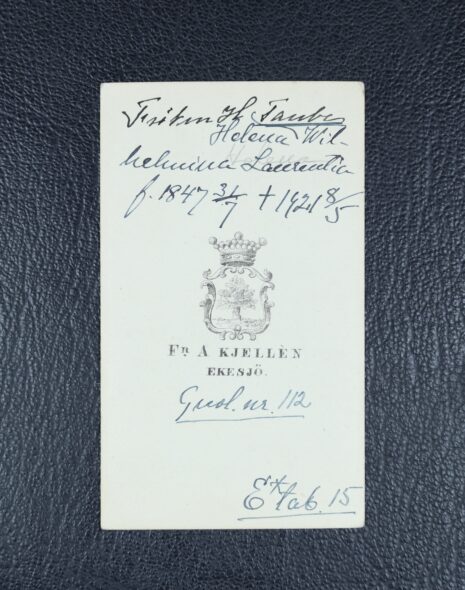 Fröken H. Taube
Helena Wil-
helmina Laurentia
f. 1847 31/7 † 1921 8/5
Fr. A KJELLÈN
EKESJÖ.
nr. 112
tab. 15